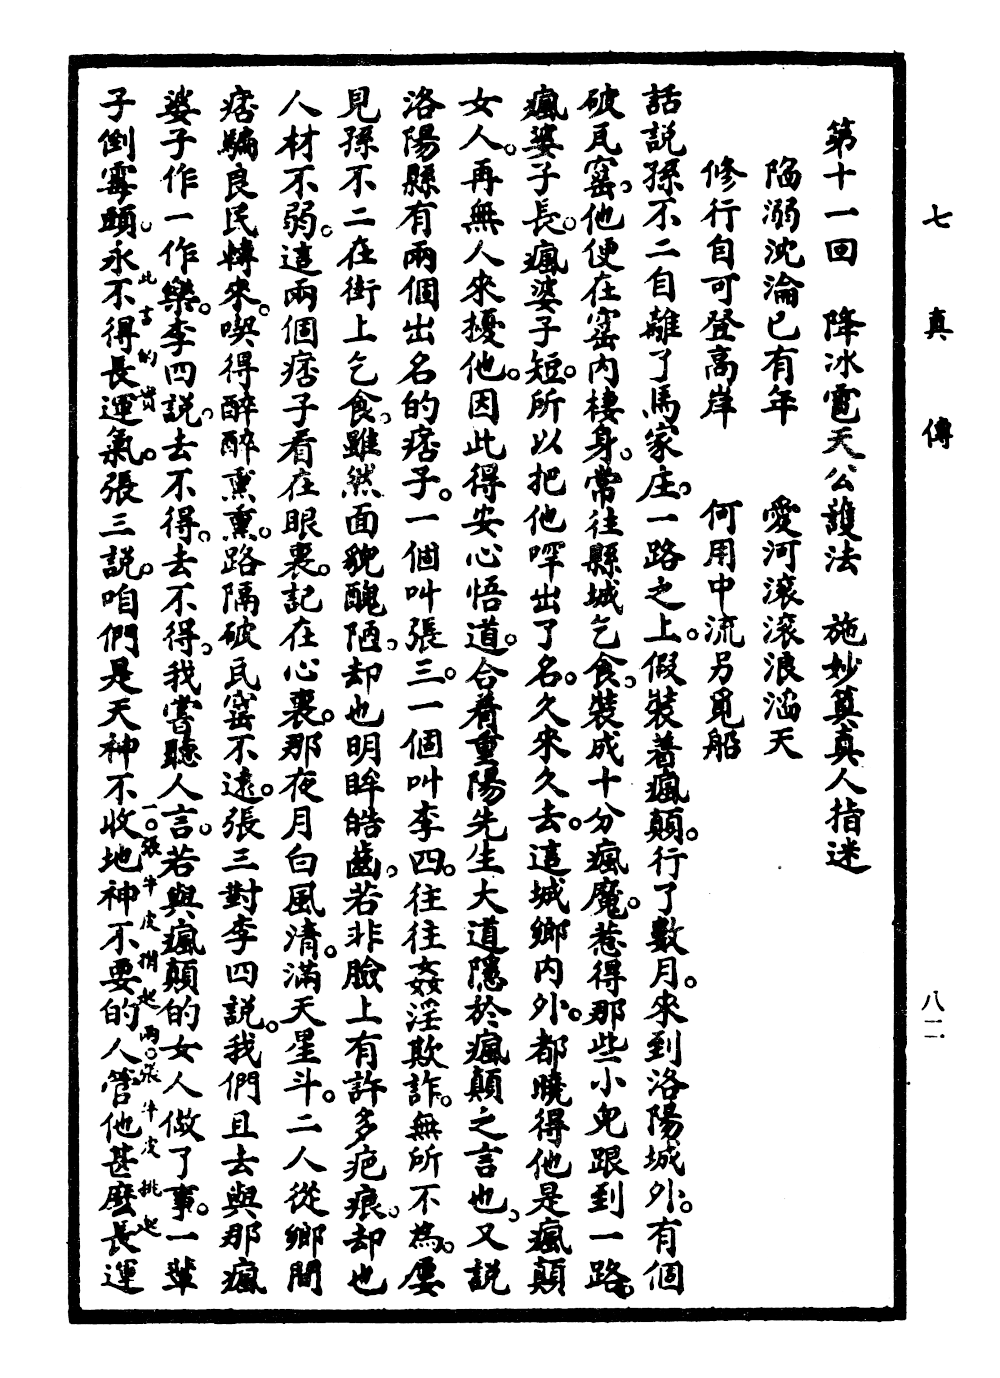 七真傳
八二
第十一回　降冰雹天公護法　施妙算真人指迷
陷溺沈淪已有年　愛河滾滾浪滔天
修行自可登高岸　何用中流另覓船
話說孫不二自離了馬家庄。一路之上。假裝着瘋顛。行了數月。來到洛陽城外。有個
破瓦窰。他便在窰內棲身。常往縣城乞食。裝成十分瘋魔。惹得那些小兒跟到一路。
瘋婆子長。瘋婆子短。所以把他啈出了名。久來久去。這城鄉內外。都曉得他是瘋顛
女人。再無人來擾他。因此得安心悟道。合着重陽先生大道隱於瘋顛之言也。又說
洛陽縣有兩個出名的痞子。一個叫張三。一個叫李四。往往姦淫欺詐。無所不為。屢
見孫不二在街上乞食。雖然面貌醜陋。却也明眸皓齒。若非臉上有許多疤痕。却也
人材不弱。這兩個痞子看在眼裏。記在心裏。那夜月白風清。滿天星斗。二人從鄉間
痞騙良民轉來。喫得醉醉熏熏。路隔破瓦窰不遠。張三對李四說。我們且去與那瘋
婆子作一作樂。李四說。去不得。去不得。我嘗聽人言。若與瘋顛的女人做了事。一輩
子倒霉頤。永不得長運氣。此言的當。張三說。咱們是天神不收地神不要的人管他甚麼長運
一。張牛皮揹起兩。張牛皮挑起